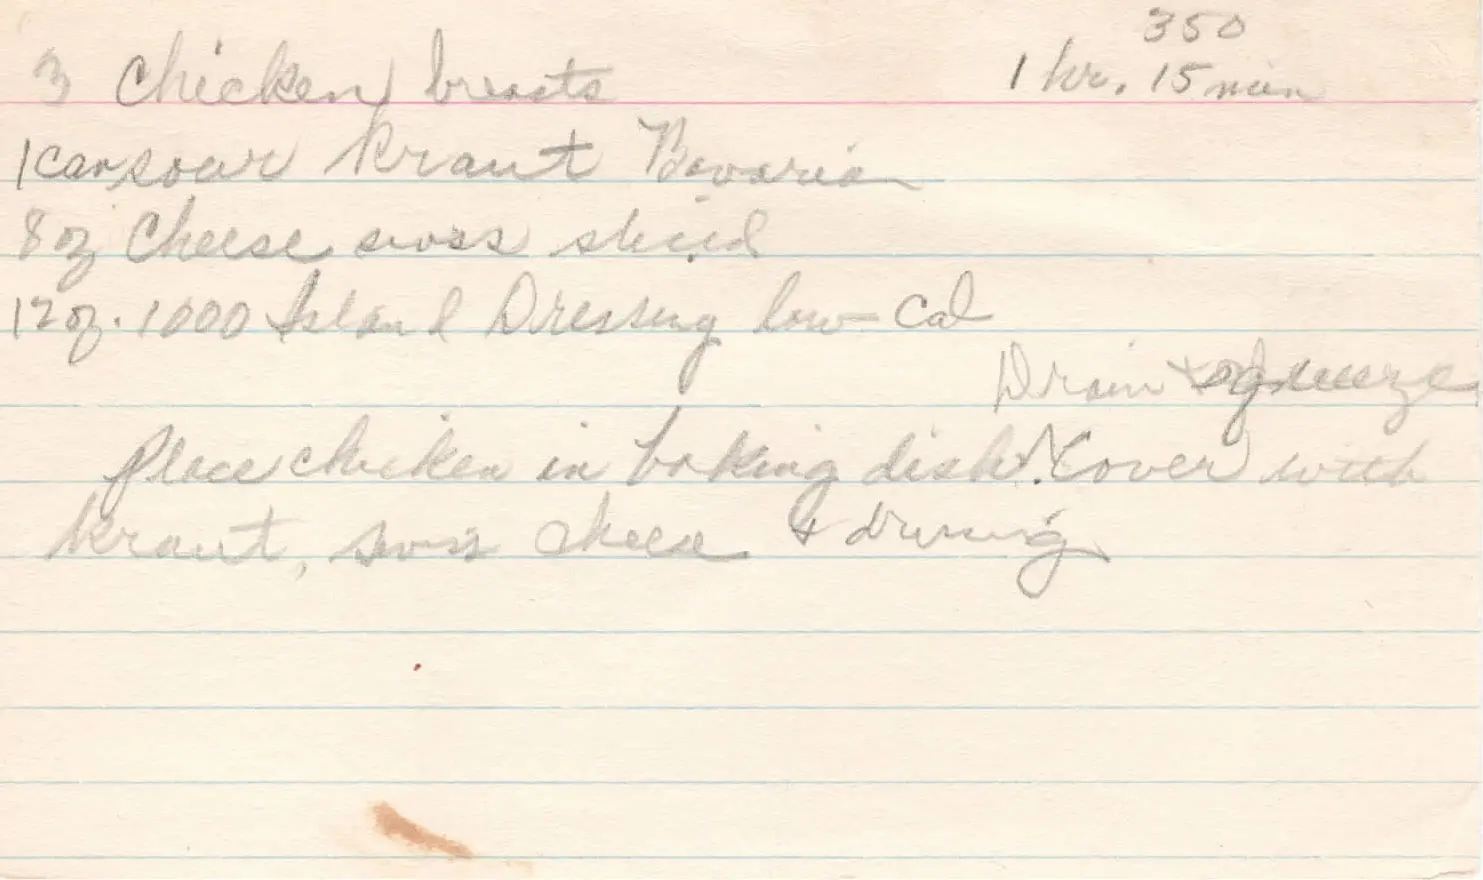 350
3 Chicken breasts 1 hr. 15 min
1 can sour Kraut Bavarian
8 oz Cheese swiss sliced
12 oz. 1000 Island Dressing low-Cal
Drain + squeeze
Place chicken in baking dish. Cover with
kraut, swiss cheese + dressing